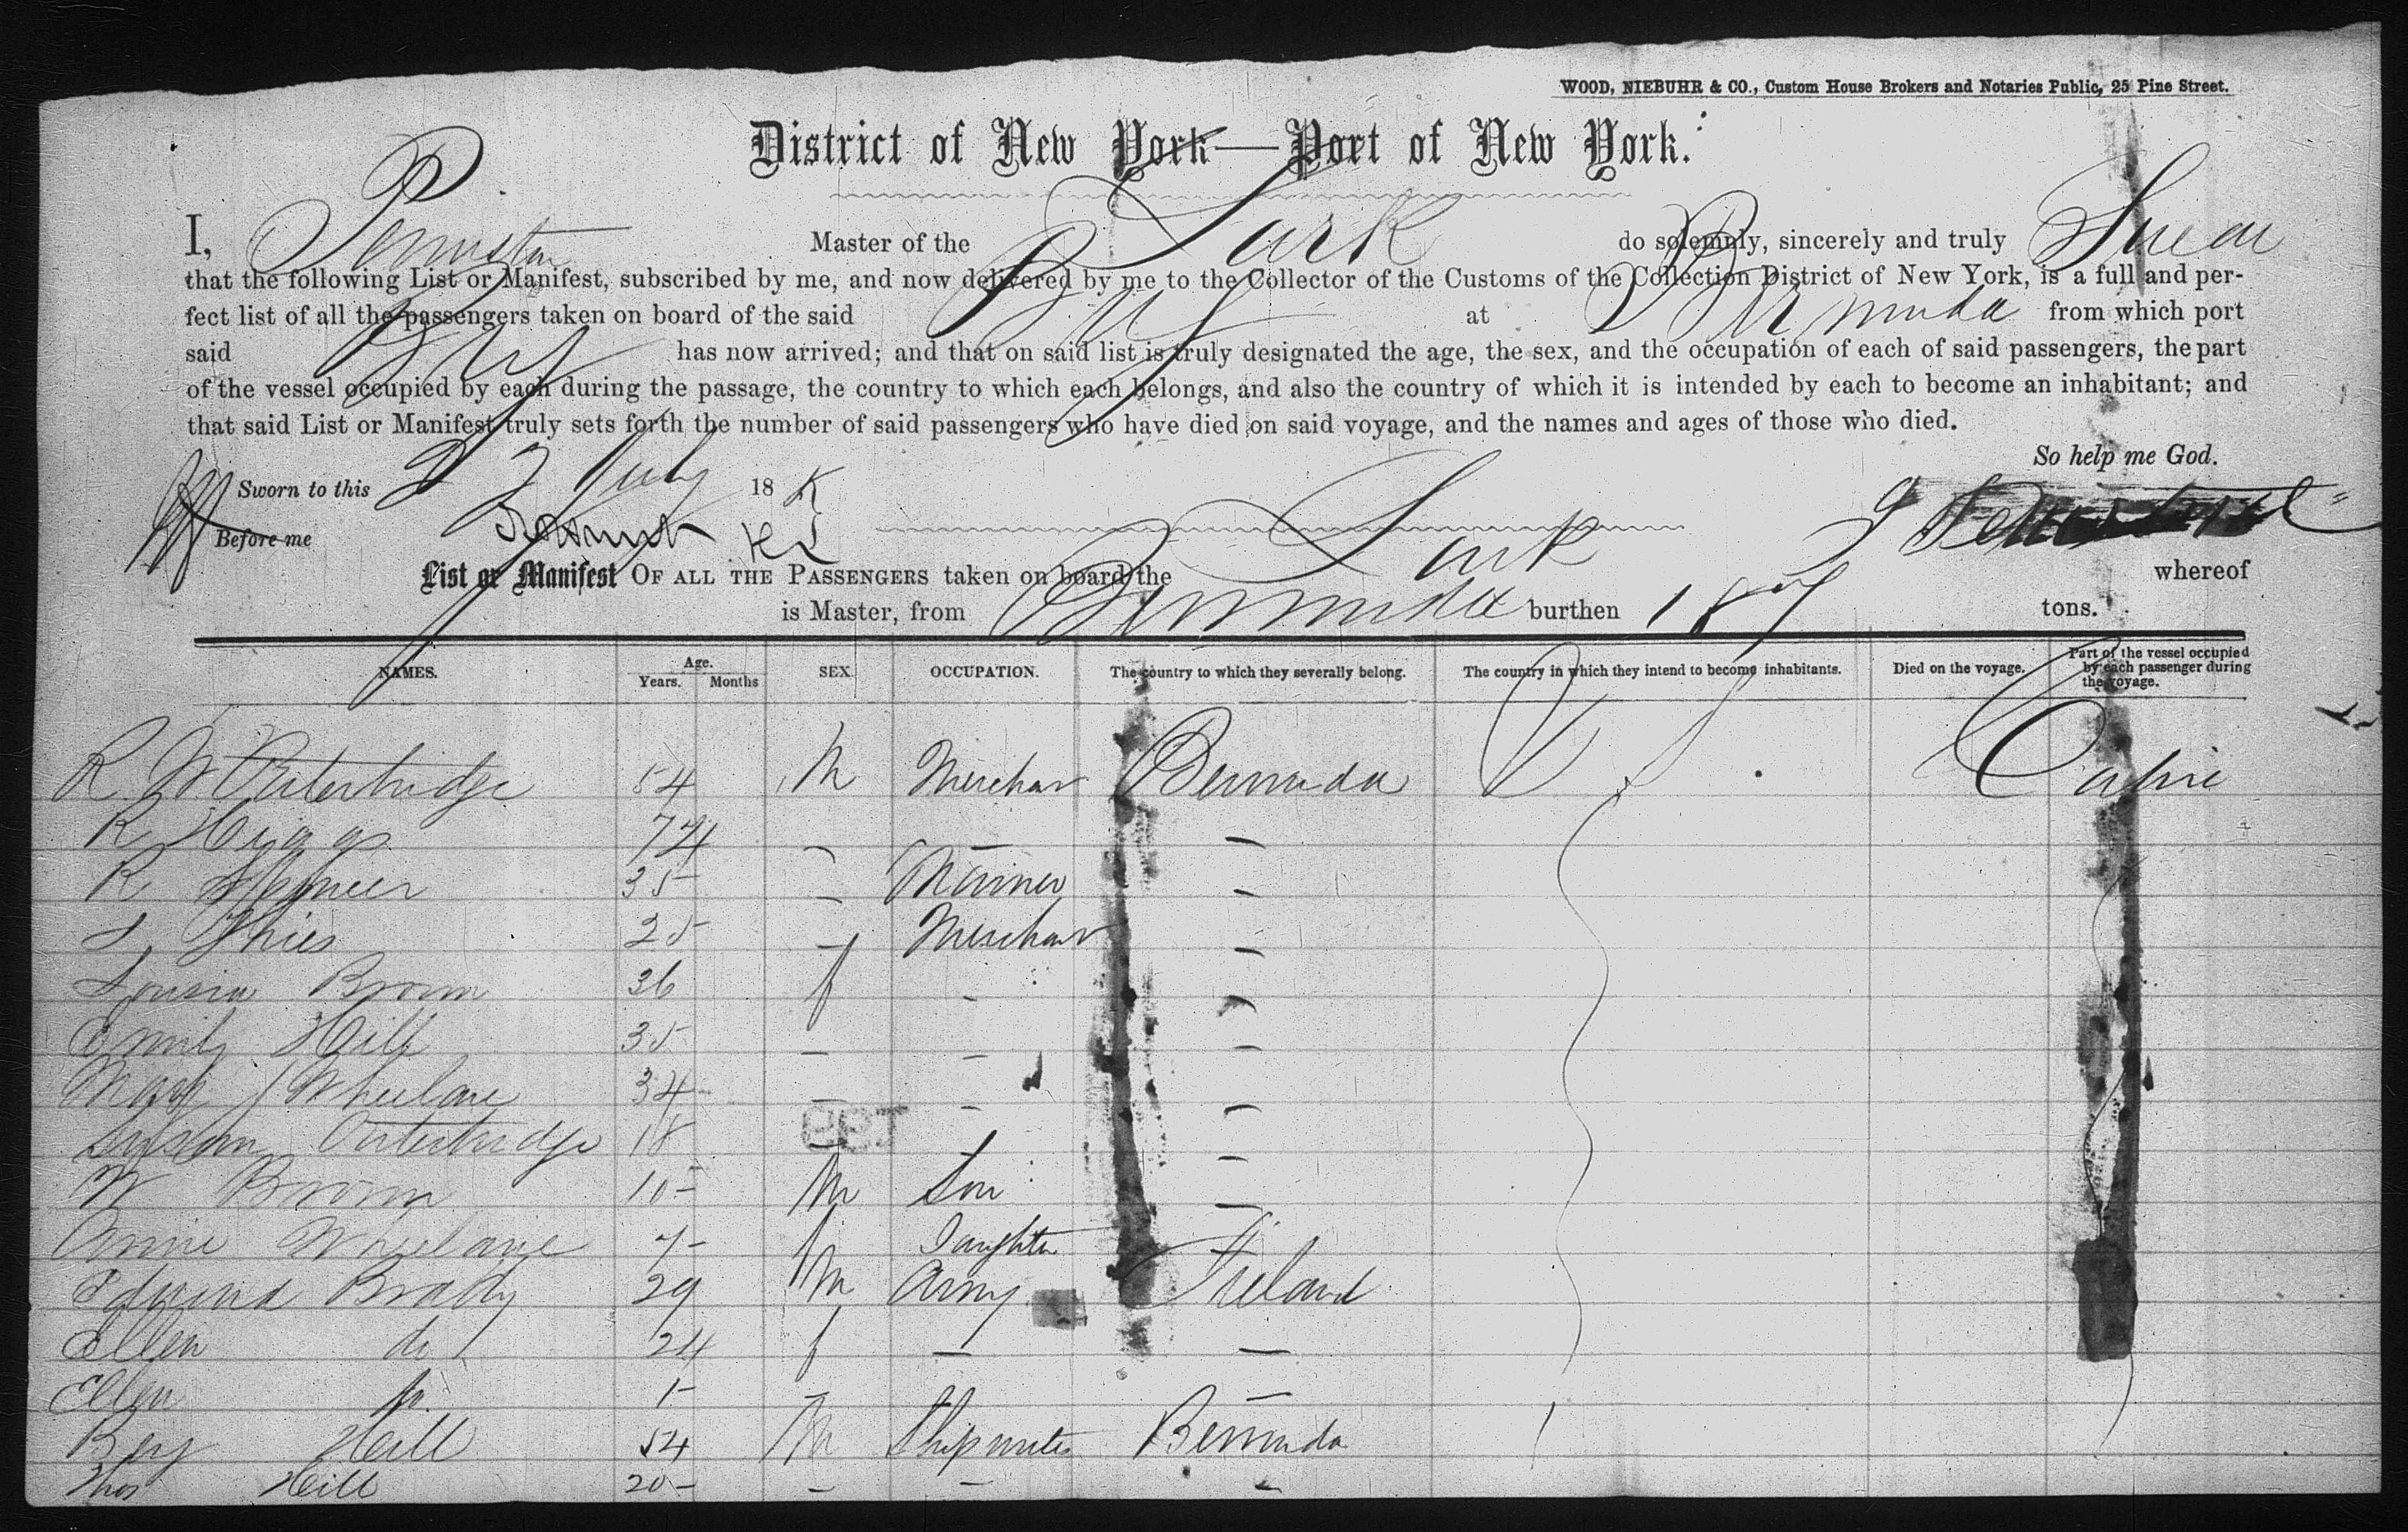 WOOD, NIEBUHR & CO., Custom House Brokers and Notaries Public, 25 Pine Street.
District of New York—Port of New York.
I, Penniston Master of the Brig Lark do solemnly, sincerely and truly Swear
that the following List or Manifest, subscribed by me, and now delivered by me to the Collector of the Customs of the Collection District of New York, is a full and per-
fect list of all the passengers taken on board of the said Brig at Bermuda from which port
said Brig has now arrived; and that on said list is truly designated the age, the sex, and the occupation of each of said passengers, the part
of the vessel occupied by each during the passage, the country to which each belongs, and also the country of which it is intended by each to become an inhabitant; and
that said List or Manifest truly sets forth the number of said passengers who have died on said voyage, and the names and ages of those who died.
So help me God.
Sworn to this 22 July 18
Before me
List or Manifest OF ALL THE PASSENGERS taken on board the Brig Lark whereof
is Master, from Bermuda burthen 187 tons.
NAMES. Age. Years. Months SEX OCCUPATION. The country to which they severally belong. The country in which they intend to become inhabitants. Died on the voyage. Part of the vessel occupied by each passenger during the voyage.
R W Outerbridge 54 M Merchan Bermuda U S Cabin
R Higgs 74 — — —
R Spencer 35 — Mariner —
S 25 — Merchan —
Lousia Brown 36 f - —
Emily Hill 35 — - —
Mary Wheelane 34 — - —
Susan Outerbridge 18 — - —
W Brown 10 — M Son —
Annie Wheelane 7 — f Daughter
Edmund Brady 29 M Army Ireland
Ellen do 24 f — —
Ellen do 1 — — —
Benj Hill 54 M Shipwrite Bermuda
Thos Hill 20 — — — —